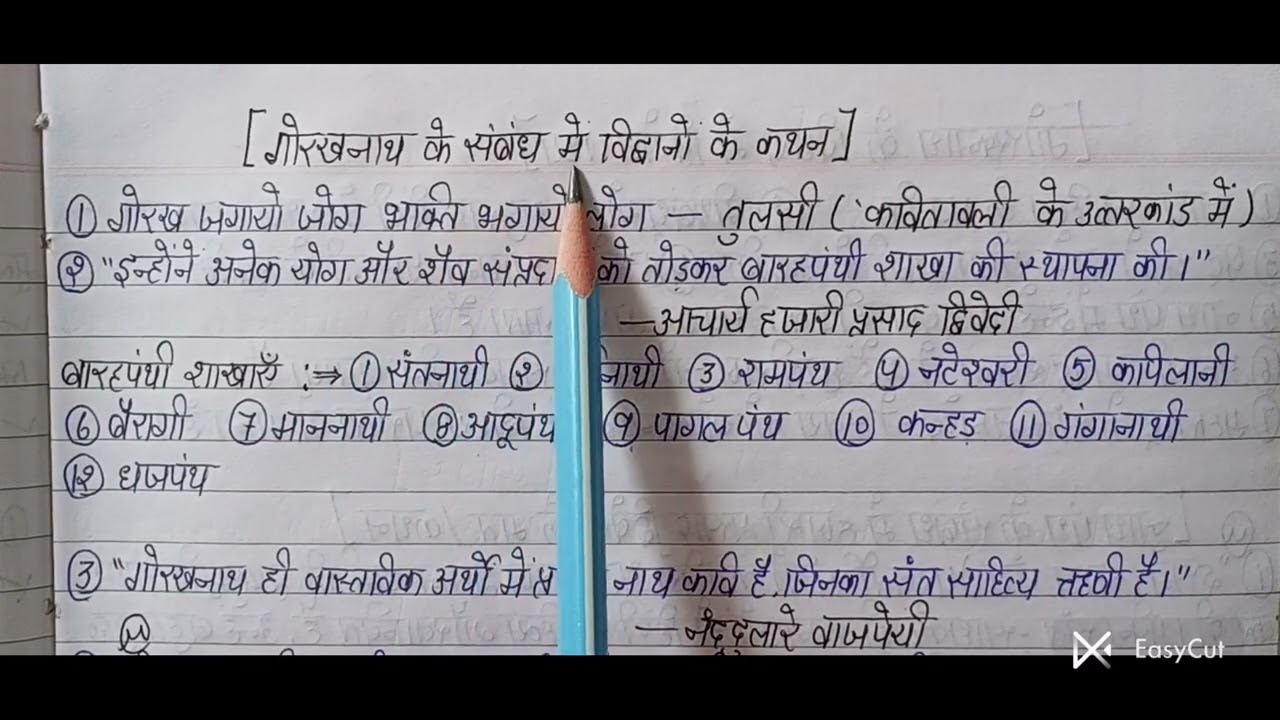 [गोरखनाथ के संबंध में विद्वानों के कथन]
① गोरख जगायो जोग भक्ति भगायो लोग — तुलसी ( 'कवितावली के उत्तरकांड में )
② "इन्होंने अनेक योग और शैव को तोड़कर बारहपंथी शाखा की स्थापना की।"
—आचार्य हजारी प्रसाद द्विवेदी
बारहपंथी शाखाएँ :⇒ ① संतनाथी ② ③ रामपंथ ④ नटेश्वरी ⑤ कपिलानी
⑥ बैरागी ⑦ माननाथी ⑧ आईपंथ ⑨ पागलपंथ ⑩ कन्हड़ ⑪ गंगानाथी
⑫ धजपंथ
③ "गोरखनाथ ही वास्तविक अर्थों में नाथ कवि है, जिनका संत साहित्य है।"
—नंददुलारे वाजपेयी
EasyCut